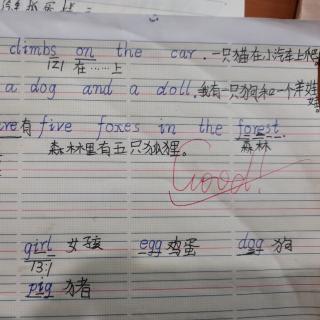 climbs on the car. 一只猫在小汽车上爬
在……上
a dog and a doll. 我有一只狗和一个洋娃
娃
are 有 five foxes in the forest.
森林里有五只狐狸。 森林
Good!
girl 女孩 egg 鸡蛋 dog 狗
pig 猪